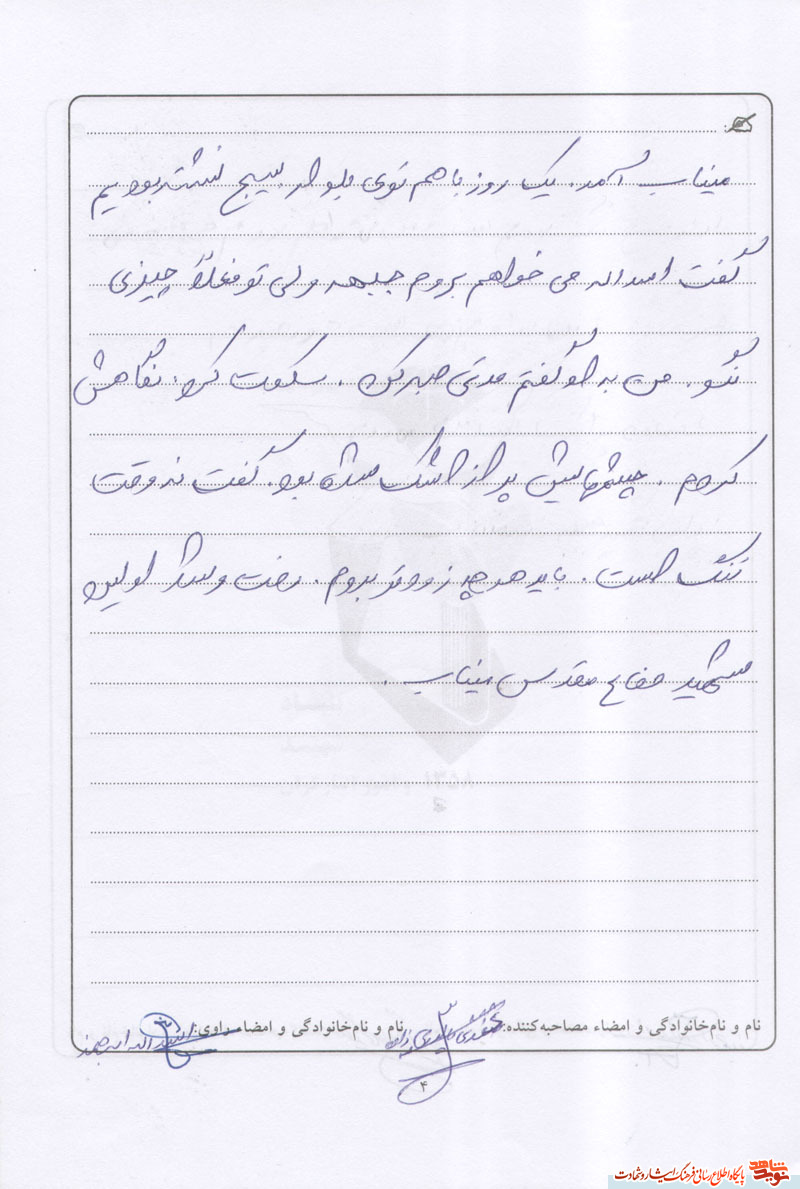 میناب آمد. یک روز باهم توی بلوار بسیج نشسته بودیم
گفت اسداله می خواهم بروم جبهه ولی تو فعلاً چیزی
نگو. من به او گفتم مدتی صبر کن. سکوت کرد. نگاهش
کردم. چشمهایش پر از اشک شده بود. گفت نه وقت
تنگ است. باید هر چه زودتر بروم. رفت و شد اولین
شهید دفاع مقدس میناب.
نام و نام‌خانوادگی و امضاء مصاحبه‌کننده:
نام و نام‌خانوادگی و امضاء راوی: اسداله
۴
نوید شاهد
پایگاه اطلاع رسانی فرهنگ ایثار و شهادت